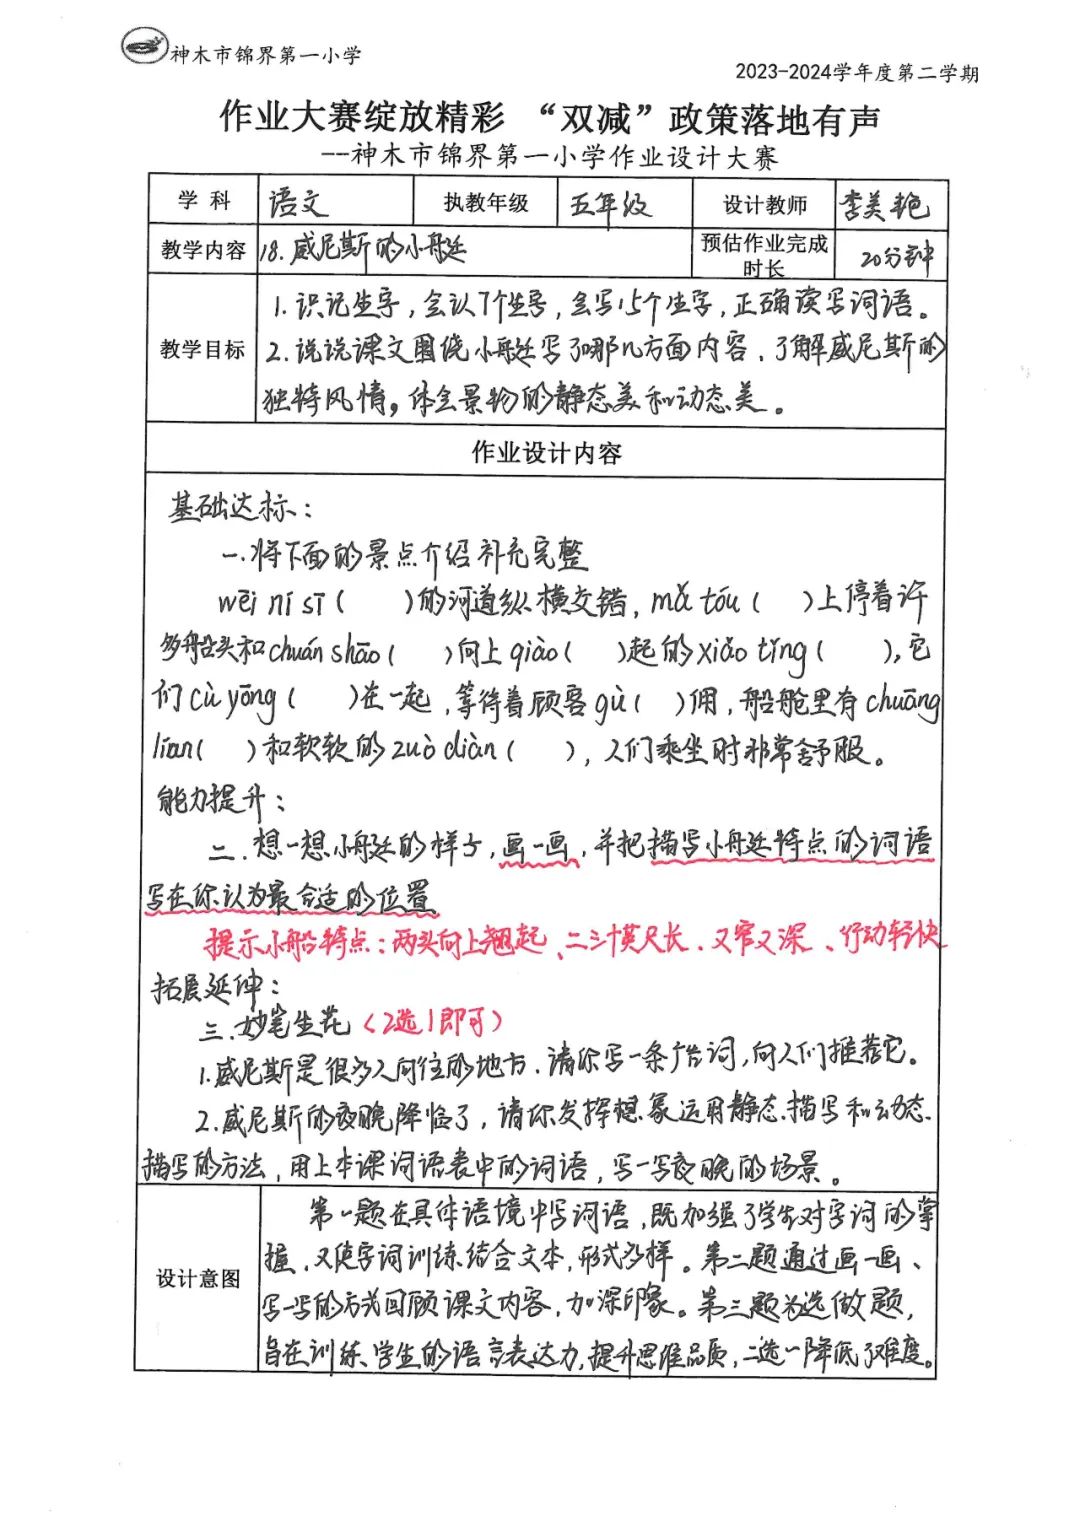 神木市锦界第一小学
2023-2024学年度第二学期
作业大赛绽放精彩 “双减”政策落地有声
--神木市锦界第一小学作业设计大赛
学 科 语文 执教年级 五年级 设计教师 李美艳
教学内容 18.威尼斯的小艇 预估作业完成时长 20分钟
教学目标
1.识记生字,会认7个生字,会写15个生字,正确读写词语。
2.说说课文围绕小艇写了哪几方面内容,了解威尼斯的
独特风情,体会景物的静态美和动态美。
作业设计内容
基础达标:
一.将下面的景点介绍补充完整
wēi ní sī ( )的河道纵横交错,mǎ tóu ( )上停着许
多船头和chuán shāo ( )向上qiào ( )起的xiǎo tǐng ( ),它
们cù yōng ( )在一起,等待着顾客gù ( )佣,船舱里有chuāng
lián ( )和软软的zuò diàn ( ),人们乘坐时非常舒服。
能力提升:
二.想一想小艇的样子,画一画,并把描写小艇特点的词语
写在你认为最合适的位置
提示小船特点:两头向上翘起、二三十英尺长、又窄又深、行动轻快
拓展延伸:
三.妙笔生花(2选1即可)
1.威尼斯是很多人向往的地方.请你写一条广告词,向人们推荐它。
2.威尼斯的夜晚降临了,请你发挥想象运用静态描写和动态
描写的方法,用上本课词语表中的词语,写一写夜晚的场景。
设计意图
第一题在具体语境中写词语,既加强了学生对字词的掌
握,又使字词训练结合文本,形式多样。第二题通过画一画、
写一写的方式回顾课文内容,加深印象。第三题为选做题,
旨在训练学生的语言表达力,提升思维品质,二选一降低了难度。